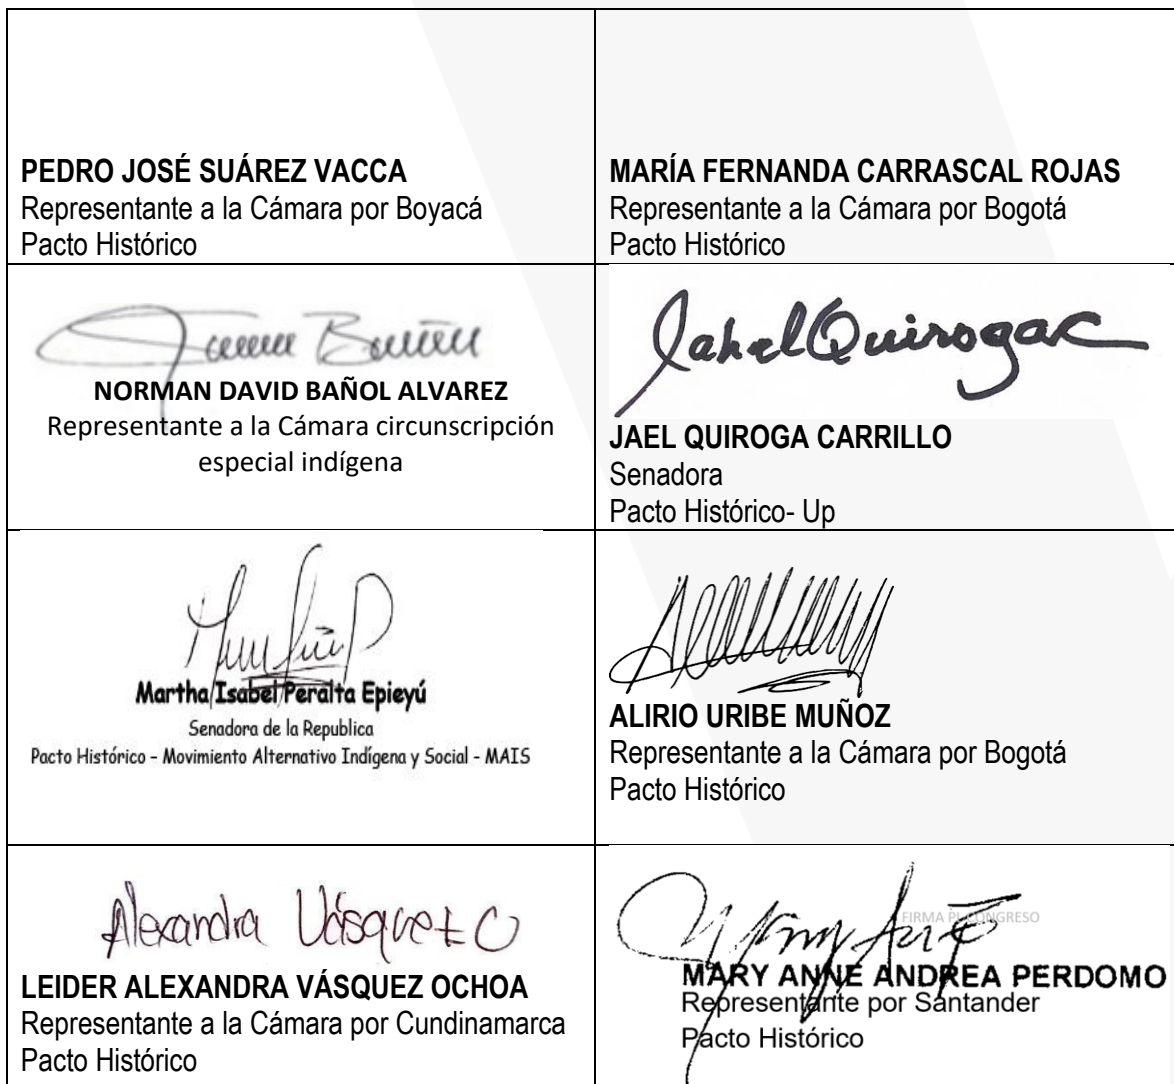 PEDRO JOSÉ SUÁREZ VACCA
Representante a la Cámara por Boyacá
Pacto Histórico
MARÍA FERNANDA CARRASCAL ROJAS
Representante a la Cámara por Bogotá
Pacto Histórico
NORMAN DAVID BAÑOL ALVAREZ
Representante a la Cámara circunscripción
especial indígena
Jahel Quiroga C
JAEL QUIROGA CARRILLO
Senadora
Pacto Histórico- Up
Martha Isabel Peralta Epieyú
Senadora de la Republica
Pacto Histórico – Movimiento Alternativo Indígena y Social - MAIS
ALIRIO URIBE MUÑOZ
Representante a la Cámara por Bogotá
Pacto Histórico
Alexandra Vásquez O
LEIDER ALEXANDRA VÁSQUEZ OCHOA
Representante a la Cámara por Cundinamarca
Pacto Histórico
FIRMA PL CONGRESO
MARY ANNE ANDREA PERDOMO
Representante por Santander
Pacto Histórico